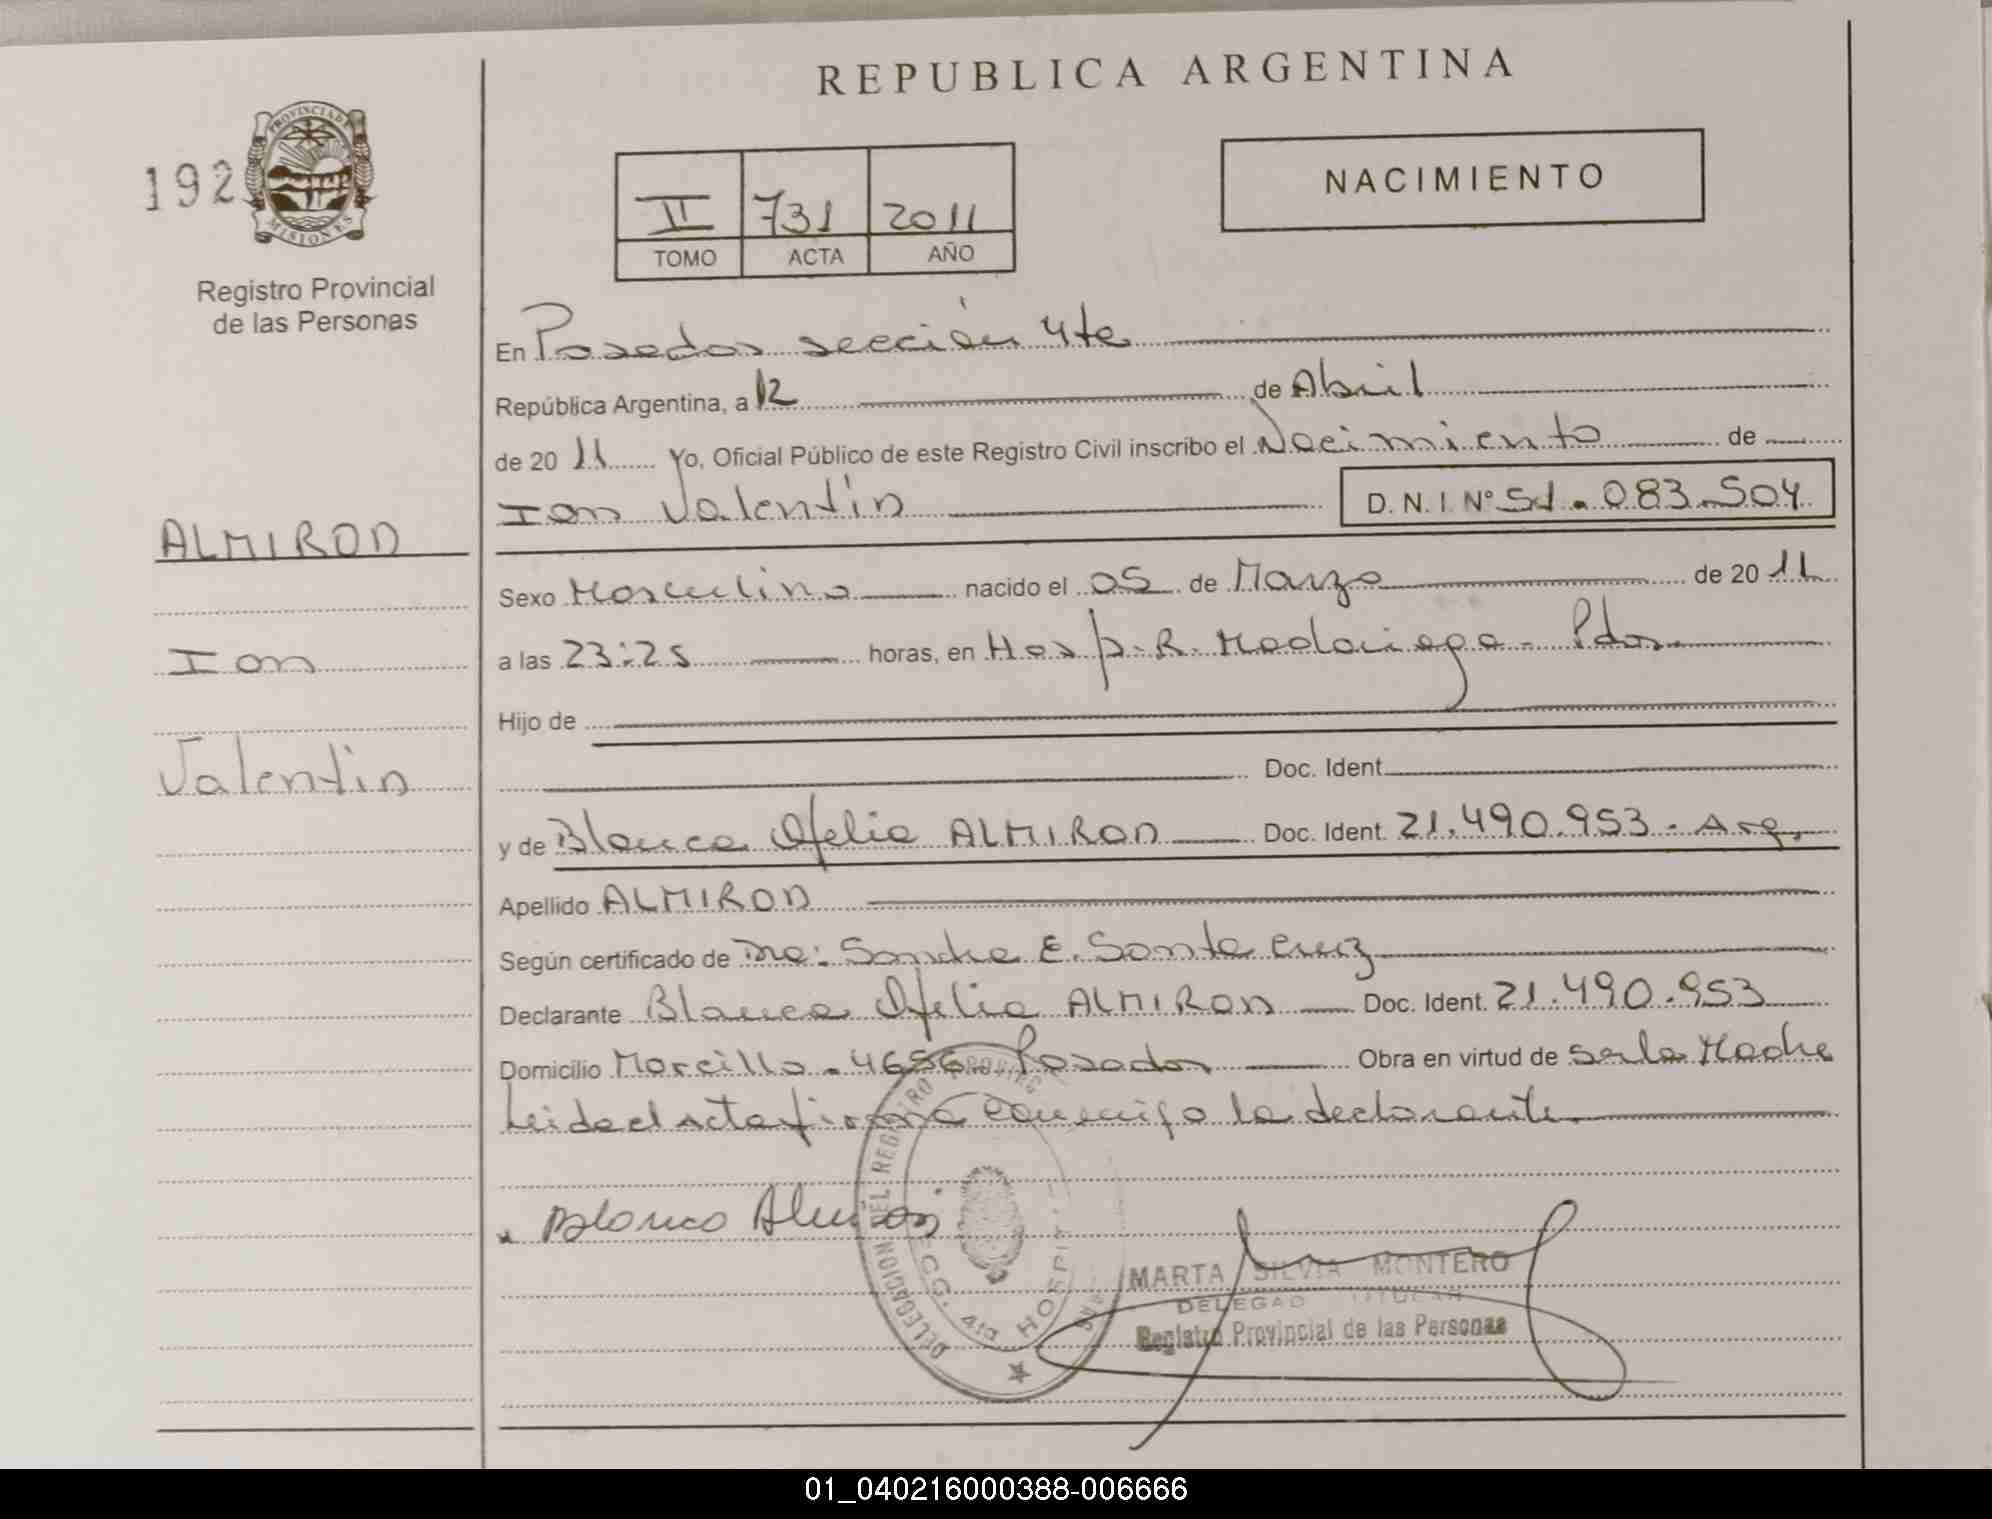 REPUBLICA ARGENTINA
192
PROVINCIA DE MISIONES
Registro Provincial
de las Personas
II 731 2011
TOMO ACTA AÑO
NACIMIENTO
En Posadas sección 4ta
República Argentina, a 12 de Abril
de 2011 Yo, Oficial Público de este Registro Civil inscribo el Nacimiento de
Ion Valentín D. N. I. Nº 51.083.504
ALMIRON
Ion
Valentín
Sexo Masculino nacido el 05 de Marzo de 2011
a las 23:25 horas, en Hosp. R. Madariaga - Pdas.
Hijo de
Doc. Ident.
y de Blanca Ofelia ALMIRON Doc. Ident. 21.490.953 - Arg.
Apellido ALMIRON
Según certificado de Dra: Sandra E. Santa Cruz
Declarante Blanca Ofelia ALMIRON Doc. Ident. 21.490.953
Domicilio Morcillo - 4656 Posadas Obra en virtud de Ser la Madre
Leida el Acta firma conmigo la declarante.
Blanca Almiron
DELEGACION DEL REGISTRO PROVINC
SECC. 4ta HOSPIT
MARTA SILVIA MONTERO
DELEGAD TITULAR
Registro Provincial de las Personas
01_040216000388-006666